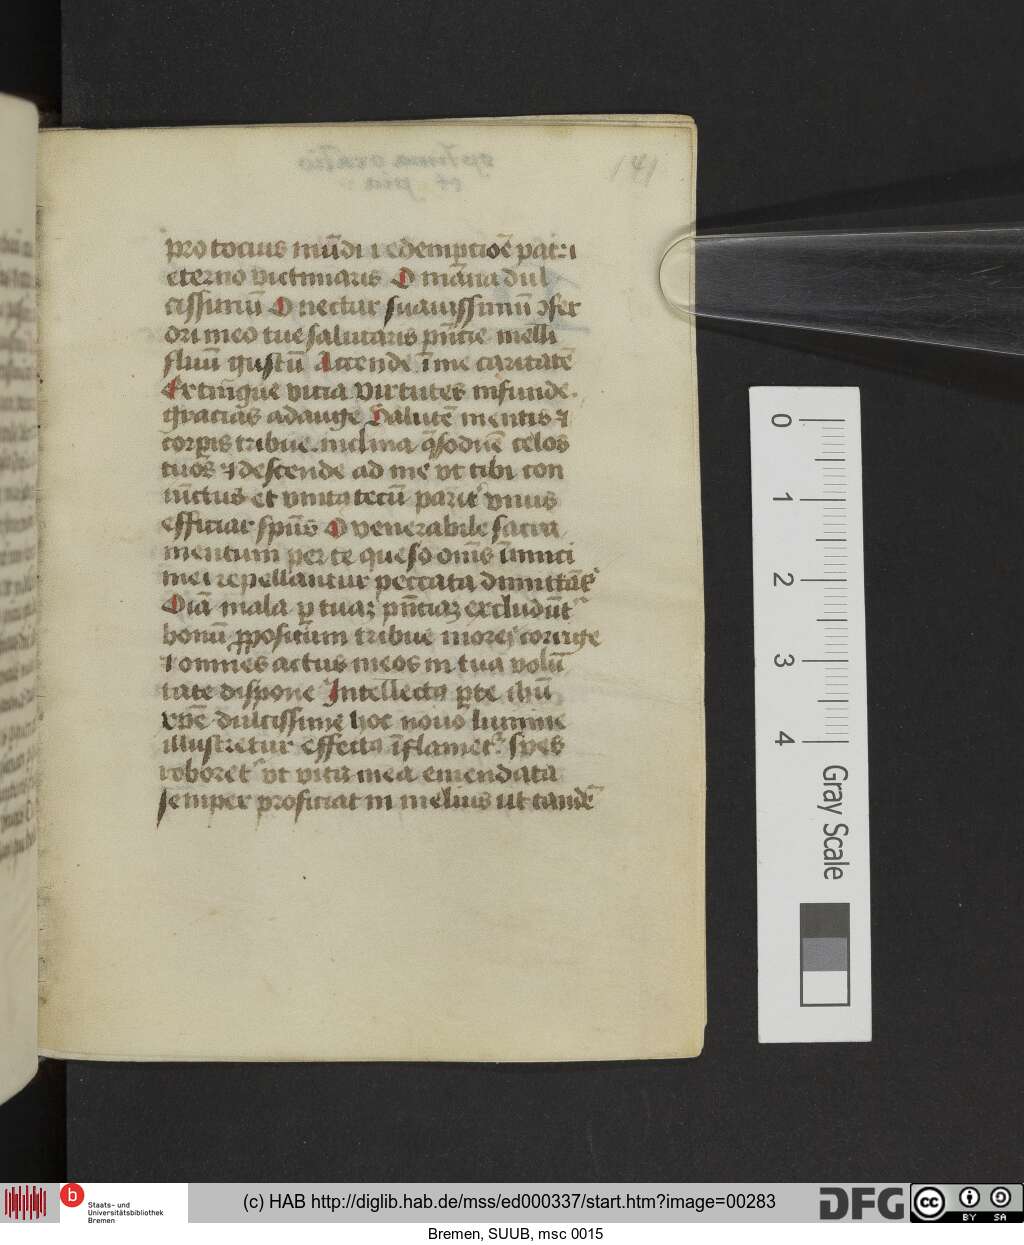 141
pro tocius mūdi redemptiōe patri
eterno victimaris O māna dul
cissimū O nectar suauissimū ɔfer
ori meo tue salutaris pn̄cie melli
fluū gustū Accende ī me caritatē
Extingue vicia virtutes infunde.
gracias adauge Salutē mentis ⁊
corpis tribue. inclina celos
tuos ⁊ descende ad me vt tibi con
iūctus et vnitus tecū parit vnus
efficiar spūs O venerabile sacra
mentum per te queso om̄s īimici
mei repellantur peccata dimittāt᷑
Oīa mala ꝑ tuaꝫ pn̄ciaꝫ excludūt᷑
bonū ꝓpositum tribue mores corrige
⁊ omnes actus meos in tua volū
tate dispone Intellectꝰ ꝑ te ihū
xp̄e dulcissime hoc nouo lumine
illustretur effectꝰ īflamet᷑ spes
roboret᷑ vt vita mea emendata
semper proficiat in melius ut tandē
0
1
2
3
4
Gray Scale
b
Staats- und
Universitätsbibliothek
Bremen
(c) HAB http://diglib.hab.de/mss/ed000337/start.htm?image=00283
DFG
cc
BY SA
Bremen, SUUB, msc 0015